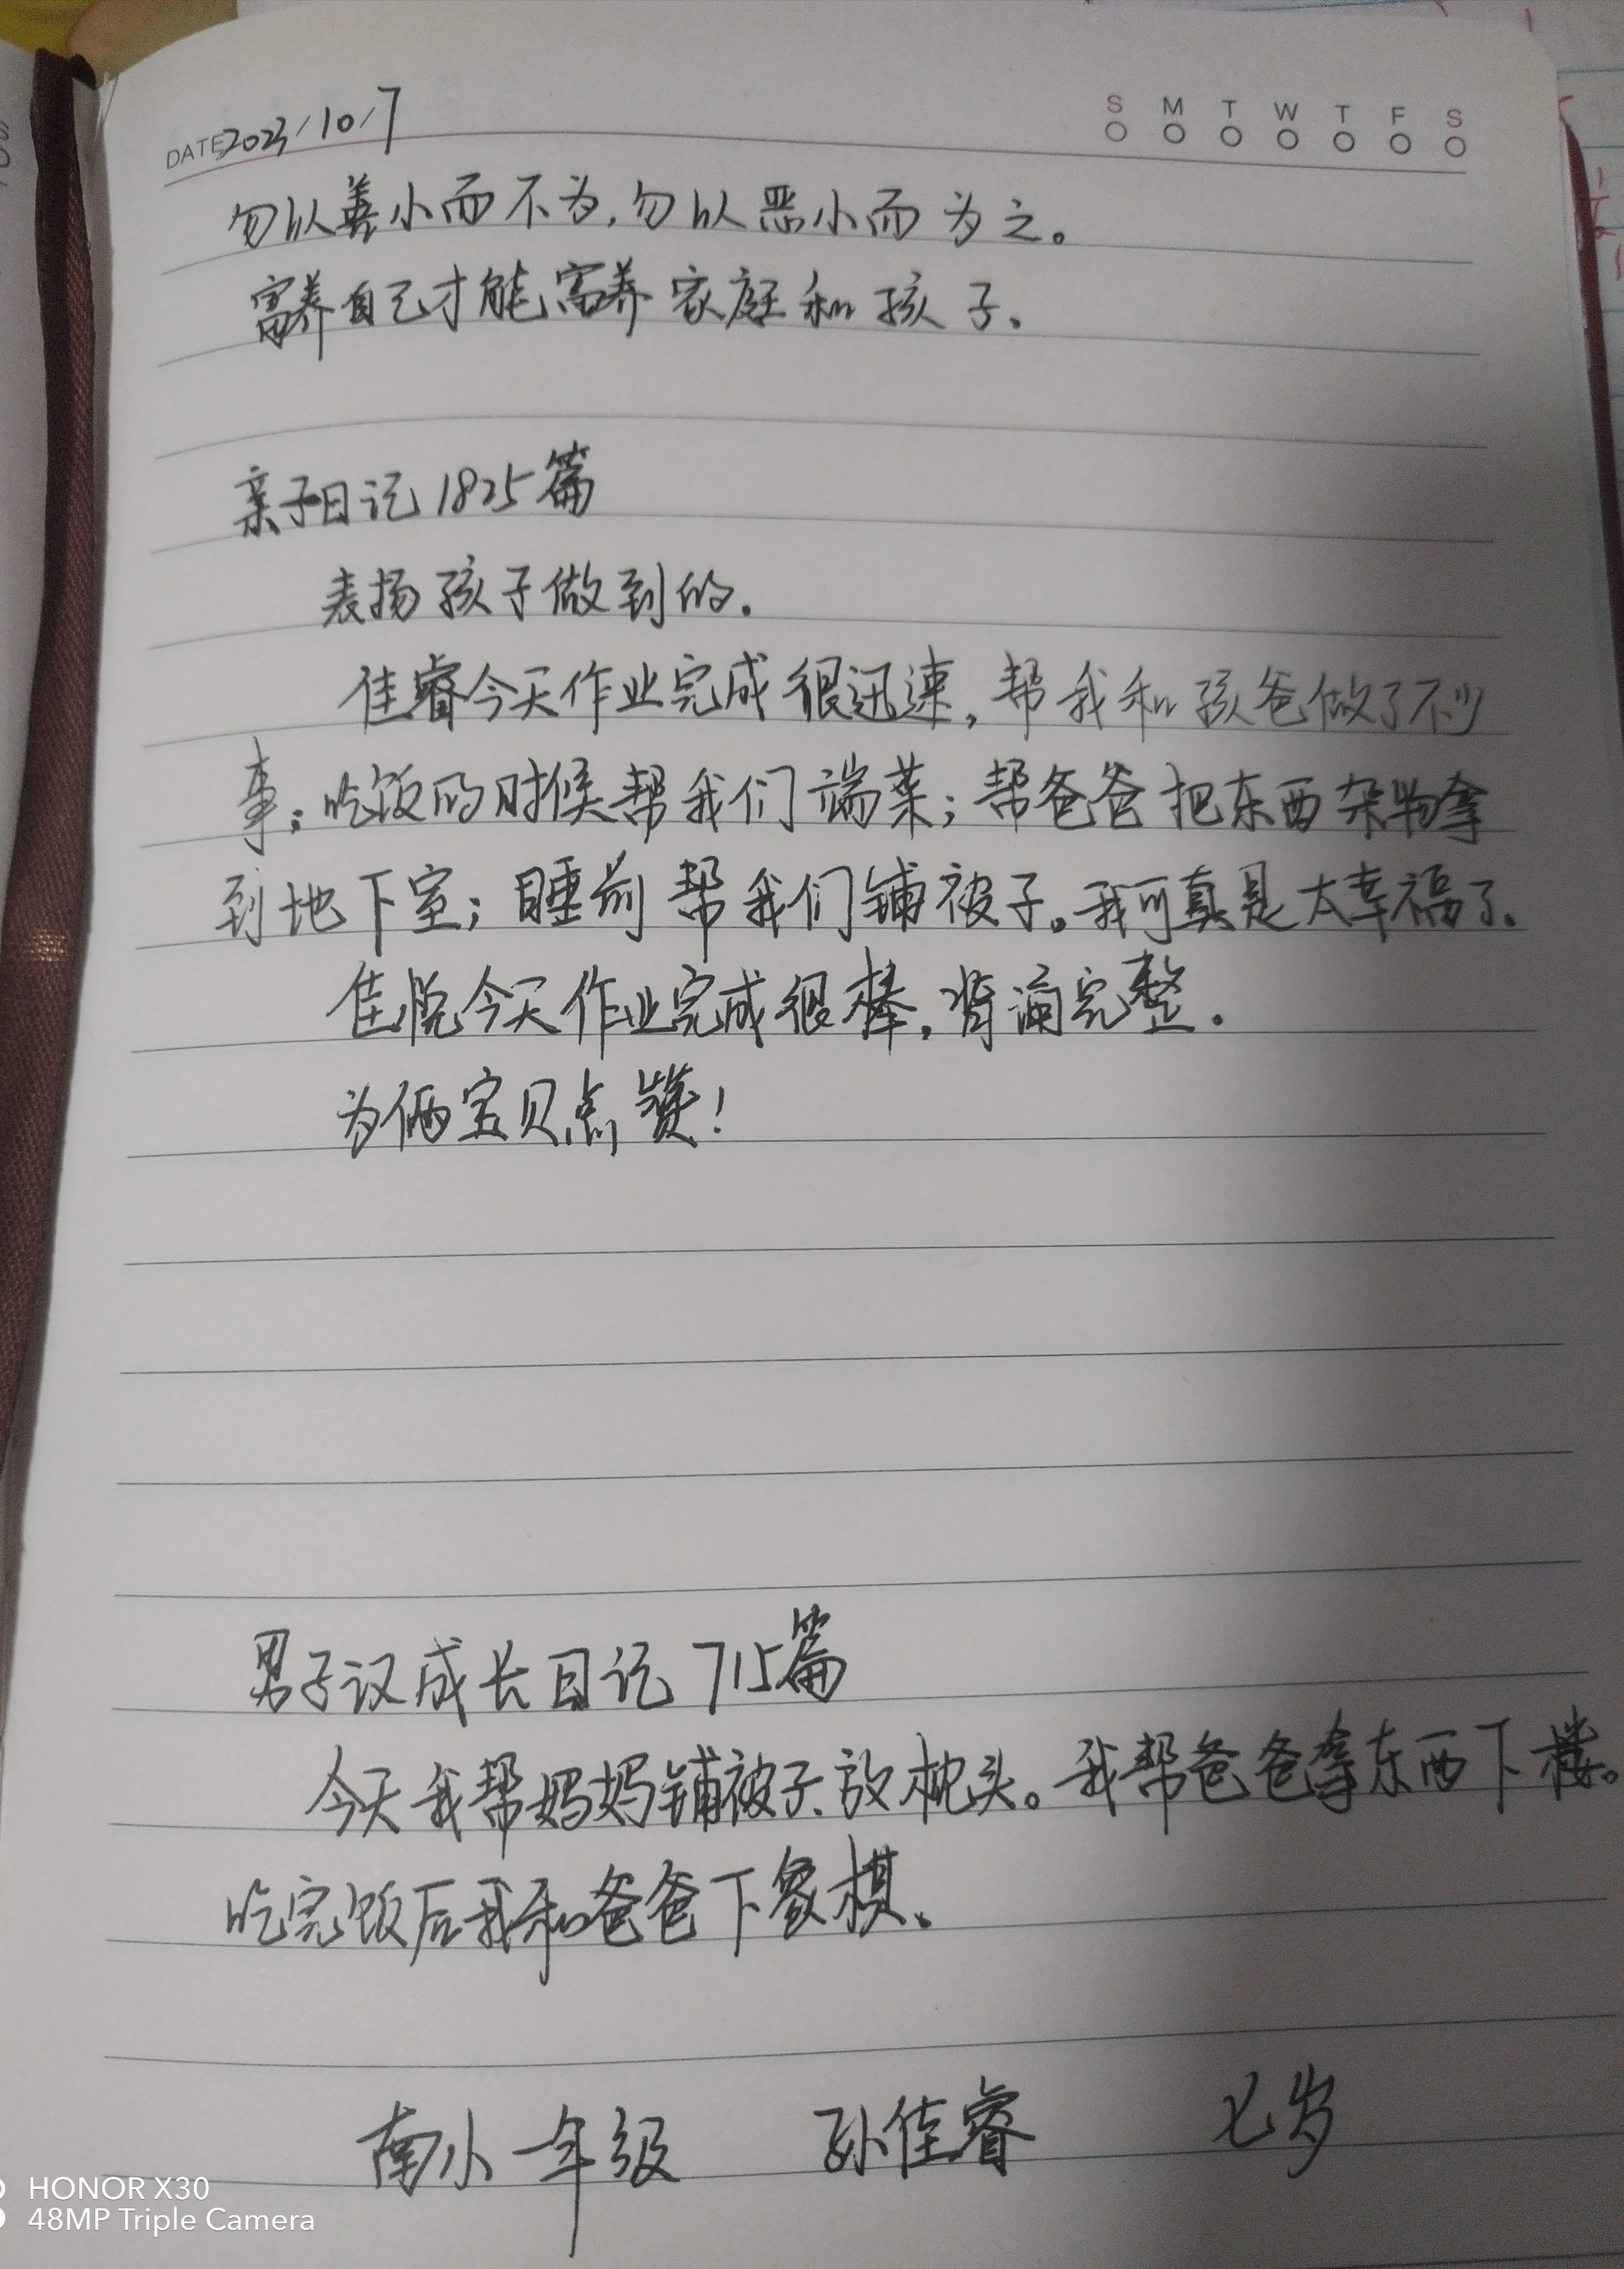 DATE 2023/10/7
S M T W T F S
勿以善小而不为,勿以恶小而为之。
富养自己才能富养家庭和孩子.
亲子日记1825篇
表扬孩子做到的.
佳睿今天作业完成很迅速,帮我和孩爸做了不少
事:吃饭的时候帮我们端菜;帮爸爸把东西杂物拿
到地下室;睡前帮我们铺被子。我可真是太幸福了.
佳悦今天作业完成很棒,背诵完整.
为俩宝贝点赞!
男子汉成长日记715篇
今天我帮妈妈铺被子、放枕头。我帮爸爸拿东西下楼。
吃完饭后我和爸爸下象棋。
南小一年级 孙佳睿 七岁
HONOR X30
48MP Triple Camera